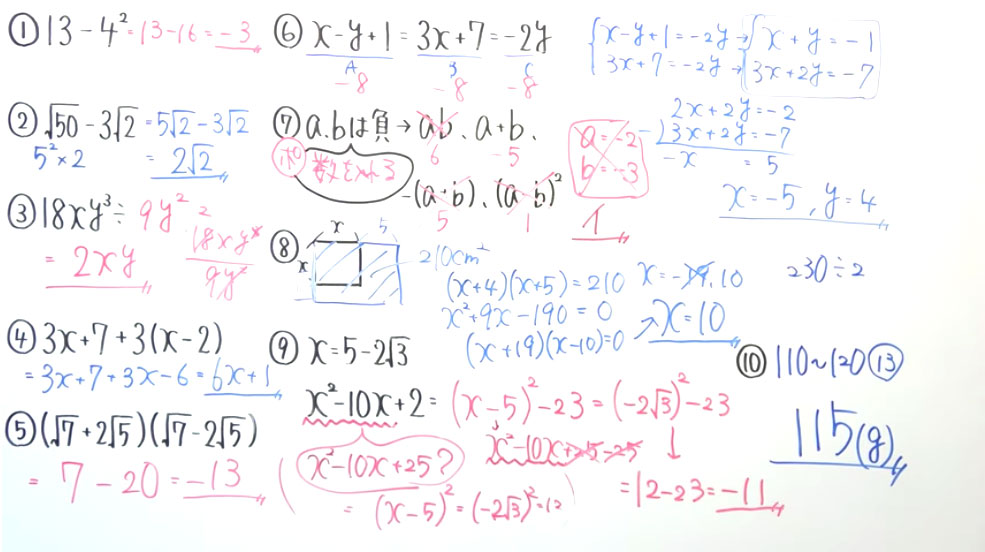 ① 13 - 4² = 13 - 16 = -3
② √50 - 3√2 = 5√2 - 3√2
5² × 2
= 2√2
③ 18xy³ ÷ 9y²
= 2xy
18xy³
9y²
2
④ 3x + 7 + 3(x - 2)
= 3x + 7 + 3x - 6 = 6x + 1
⑤ (√7 + 2√5)(√7 - 2√5)
= 7 - 20 = -13
⑥ x - y + 1 = 3x + 7 = -2y
A B C
-8 -8 -8
x - y + 1 = -2y → x + y = -1
3x + 7 = -2y → 3x + 2y = -7
2x + 2y = -2
-) 3x + 2y = -7
-x = 5
x = -5, y = 4
⑦ a.bは負 → ab、a + b、
6 -5
ポ 数を入れる
-(a + b)、(a - b)²
5 1
a = -2
b = -3
1
⑧ x 5
x
210cm²
(x+4)(x+5) = 210
x² + 9x - 190 = 0
(x+19)(x-10) = 0
x = -19, 10
x = 10
⑨ x = 5 - 2√3
x² - 10x + 2 = (x - 5)² - 23 = (-2√3)² - 23
x² - 10x + 25 - 25
↓
= 12 - 23 = -11
( x² - 10x + 25 ?
= (x - 5)² = (-2√3)² = 12 )
230 ÷ 2
⑩ 110～120 ⑬
115(g)